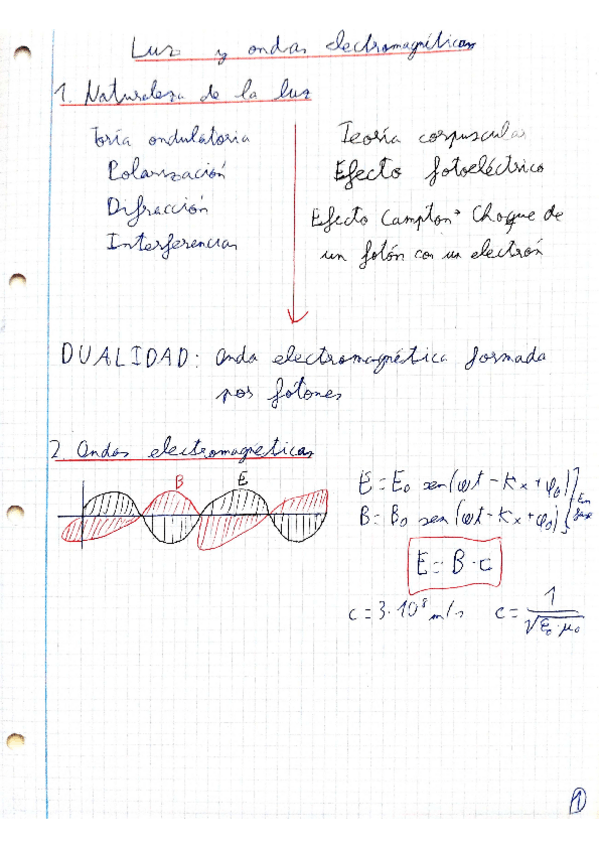 Luz y ondas electromagnéticas
1. Naturaleza de la luz
Toría ondulatoria
Polarización
Difracción
Interferencias
Teoría corpuscular
Efecto fotoeléctrico
Efecto Campton: Choque de
un fotón con un electrón
DUALIDAD: Onda electromagnética formada
por fotones
2 Ondas electromagneticas
B E
E = E₀ sen(ωt - Kx + φ₀)
B = B₀ sen(ωt - Kx + φ₀)
En fase
E = B · c
c = 3·10⁸ m/s c = 1/√ε₀·μ₀
1